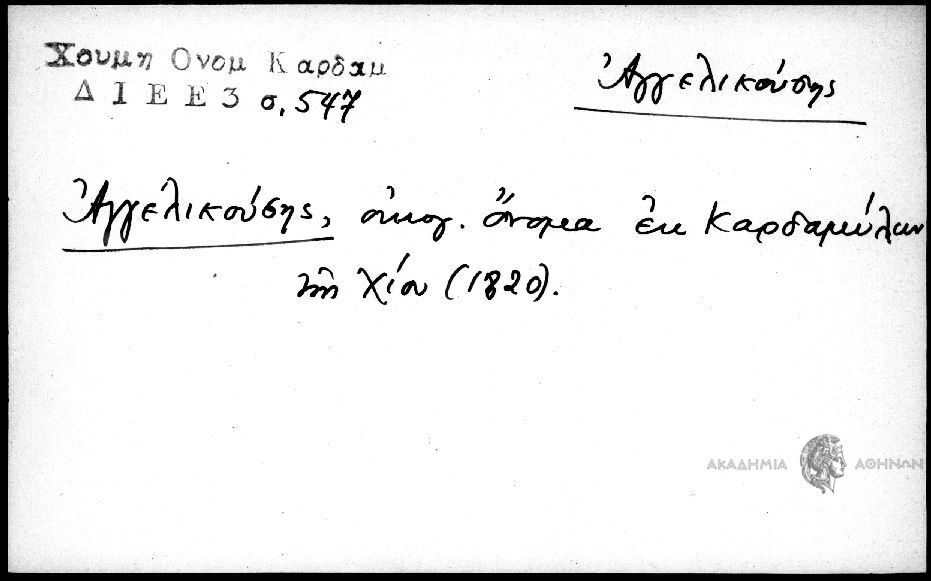 Χουμη Ονομ Καρδαμ
Δ Ι Ε Ε 3 σ. 547
Ἀγγελικούσης
Ἀγγελικούσης, οἰκογ. ὄνομα ἐκ Καρδαμύλων
τῆς Χίου (1820).
ΑΚΑΔΗΜΙΑ ΑΘΗΝΩΝ